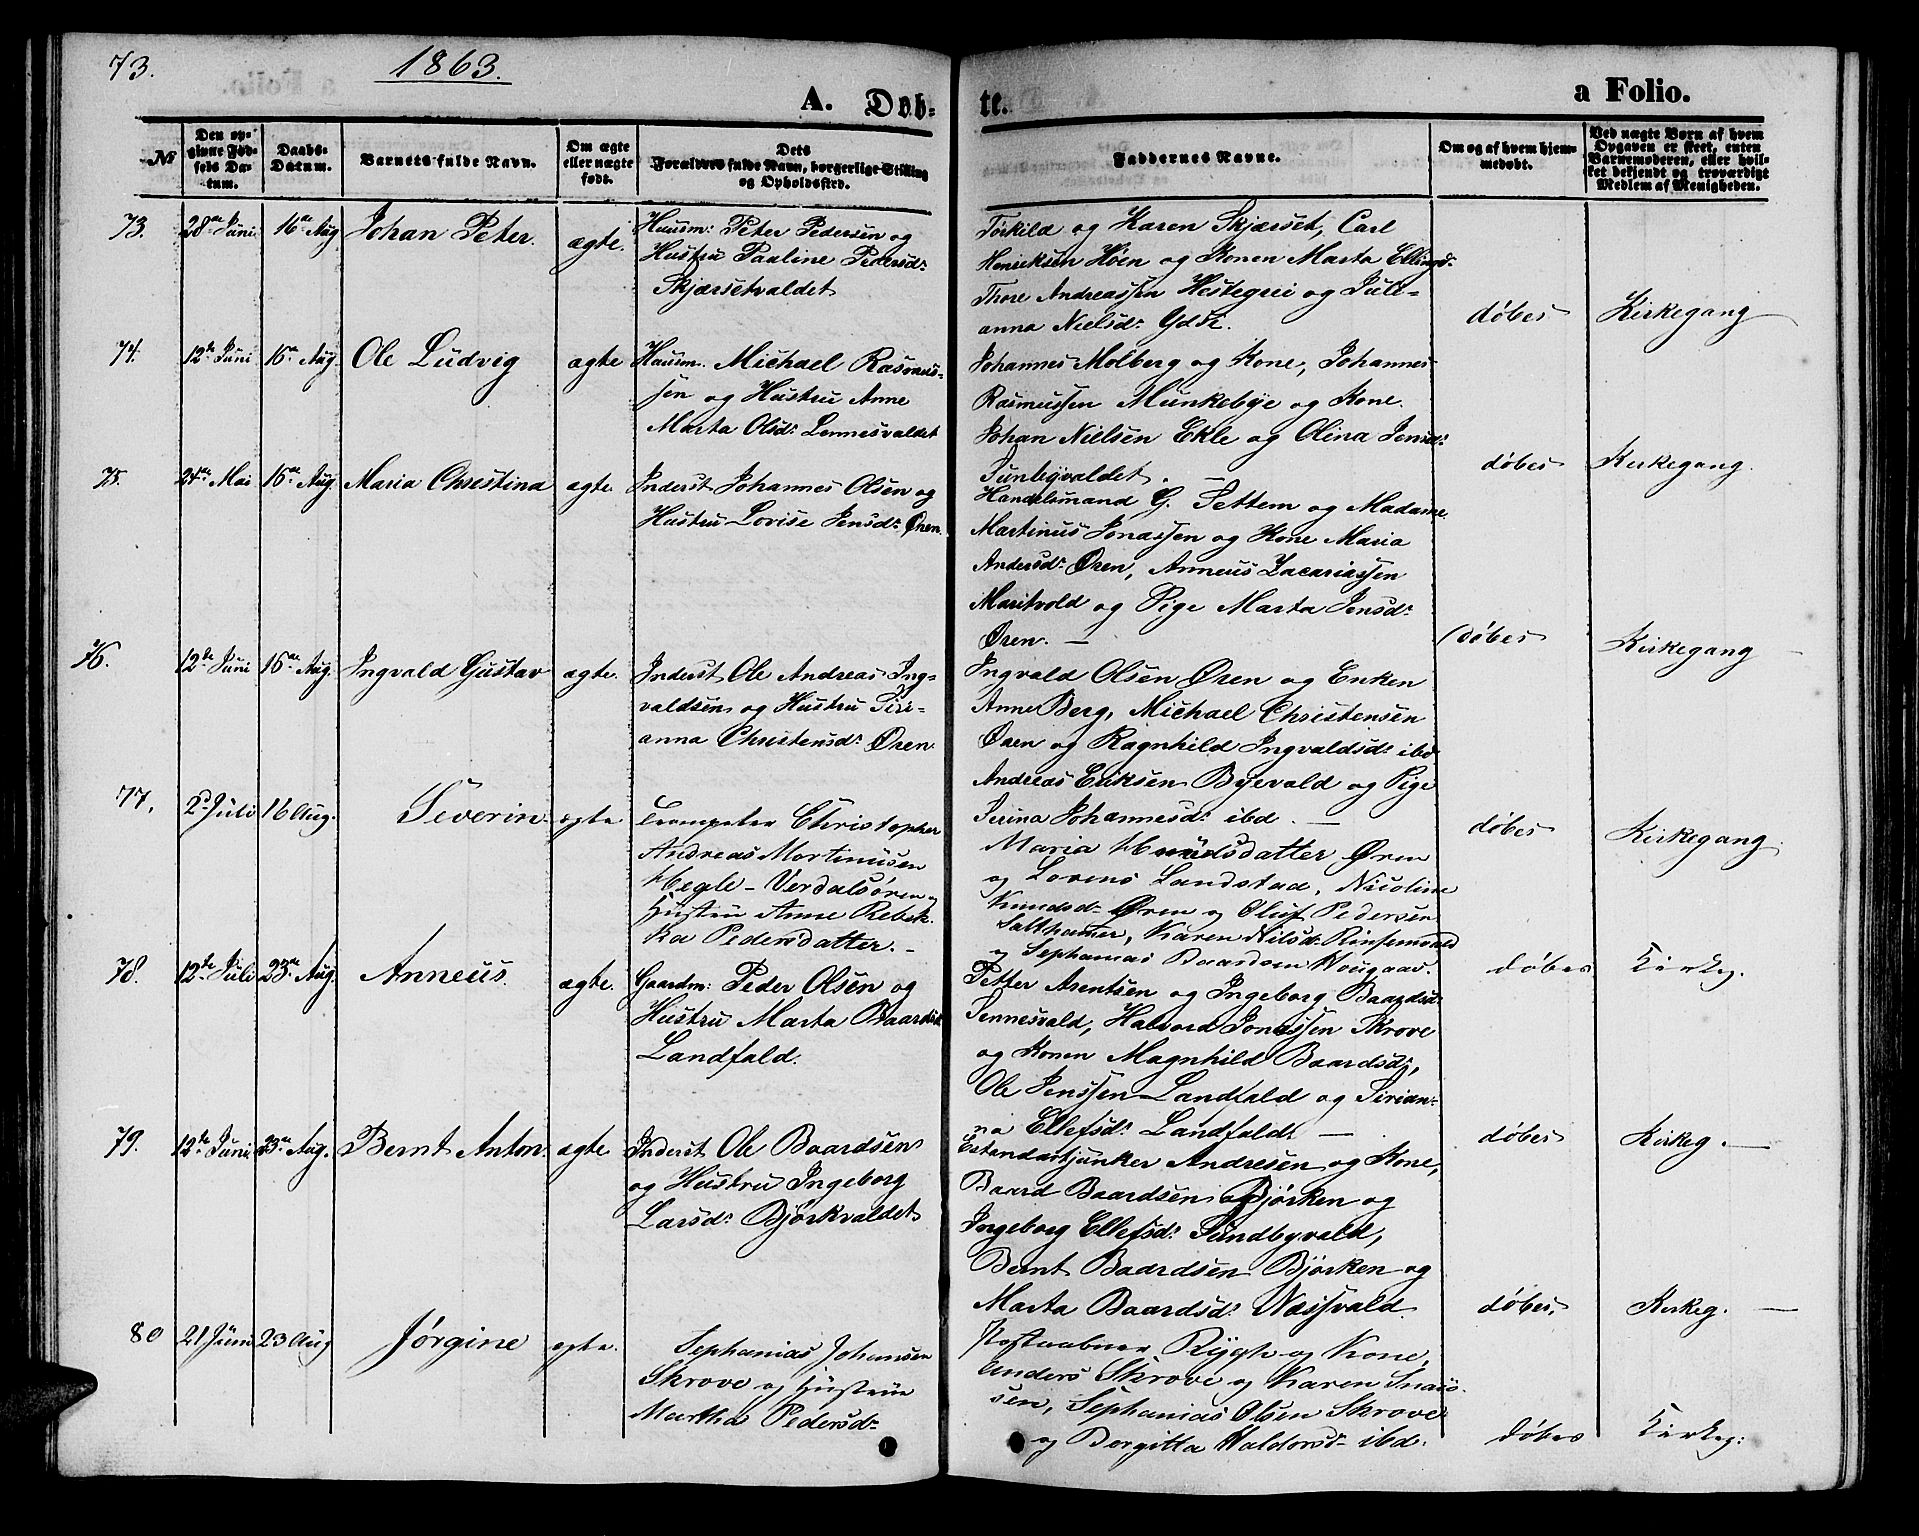 73.
1863.
A. Døb-
te.
a Folio.
№
Den op-
givne Fød-
sels Da-
tum.
Daabs-
Datum.
Barnets fulde Navn.
Om ægte
eller uægte
født.
Dets
Forældres fulde Navn, borgerlige Stilling
og Opholdssted.
Faddernes Navne.
Om og af hvem hjem-
medøbt.
Ved uægte Børn af hvem
Opgaven er skeet, enten
Barnemoderen, eller hvil-
ket bekjendt og troværdigt
Medlem af Menigheden.
73.
28de Juni
16de Aug
Johan Peter.
ægte.
Huusm: Peter Pedersen og
Hustru Pauline Pedersd:
Skjærsetvaldet
Torkild og Karen Skjærset, Carl
Henriksen Høen og Konen Marta Ellingd:
Thore Andreassen Hestegrei og Juli-
anna Nielsd: Ydse.
døbes
Kirkegang
74.
12te Juni
16de Aug.
Ole Ludvig
ægte
Huusm. Michael Rasmus-
sen og Hustru Anne
Marta Olsd: Lennesvaldet
Johannes Molberg og Kone, Johannes
Rasmussen Munkebye og Kone.
Johan Nielsen Ekle og Olina Jensd:
Sunbyvaldet.
døbes
Kirkegang.
75.
24de Mai
16de Aug.
Maria Christina
ægte.
Inderst Johannes Olsen og
Hustru Lovise Jensd: Øren.
Handelsmand G. Settem og Madame
Martinus Jonassen og Kone Maria
Andersd: Øren, Anneus Zacariassen
Maritvold og Pige Marta Jensd:
Øren. —
døbes
Kirkegang
76.
12te Juni
16de Aug.
Ingvald Gustav
ægte.
Inderst Ole Andreas Ing-
valdsen og Hustru Siri-
anna Christensd: Øren.
Ingvald Olsen Øren og Enken
Anne Berg, Michael Christensen
Øren og Ragnhild Ingvaldsd: ibd
Andreas Eriksen Byevald og Pige
Serina Johannesd: ibd. —
døbes
Kirkegang.
77.
2d Juli
16 Aug.
Severin
ægte
Trompeter Christopher
Andreas Mortinusen
Hegle - Verdalsøren og
Hustru Anne Rebek-
ka Pedersdatter. -
Maria datter Øren
og Lorens Landstad, Nicoline
Knudsd- Øren og Oluf Pedersen
Salthamer, Karen Nilsd:
og Sephanias Baardsen Hougaar.
døbes
Kirkeg.
78.
12te Juli
23de Aug.
Anneus.
ægte.
Gaardm: Peder Olsen og
Hustru Marta Baardsd:
Landfald.
Petter Arentsen og Ingeborg Baardsd:
Sennesvald, Halvord Jonassen Skrove
og Konen Magnhild Baardsd;
Ole Jenssen Landfald og Sirian-
na Ellefsd: Landfald. —
døbes
Kirkeg. —
79.
12te Juni
23de Aug.
Bernt Anton
ægte
Inderst Ole Baardsen
og Hustru Ingeborg
Larsd: Bjørkvaldet
Estandartjunker Andresen og Kone,
Baard Baardsen Bjørken og
Ingeborg Ellefsd: Sundbyvald,
Bernt Baardsen Bjørken og
Marta Baardsd: Næssvald.
døbes.
Kirkeg. —
80
21 Juni
23 Aug
Jørgine
ægte.
Sephanias Johansen
Skrove og Hustrue
Martha Pedersd-
Postaabner Rygh og Kone,
Anders Skrove og Karen Snaus-
sen, Sephanias Olsen Skrove
og Bergitta Haldorsd- ibd.
døbes
Kirkeg: